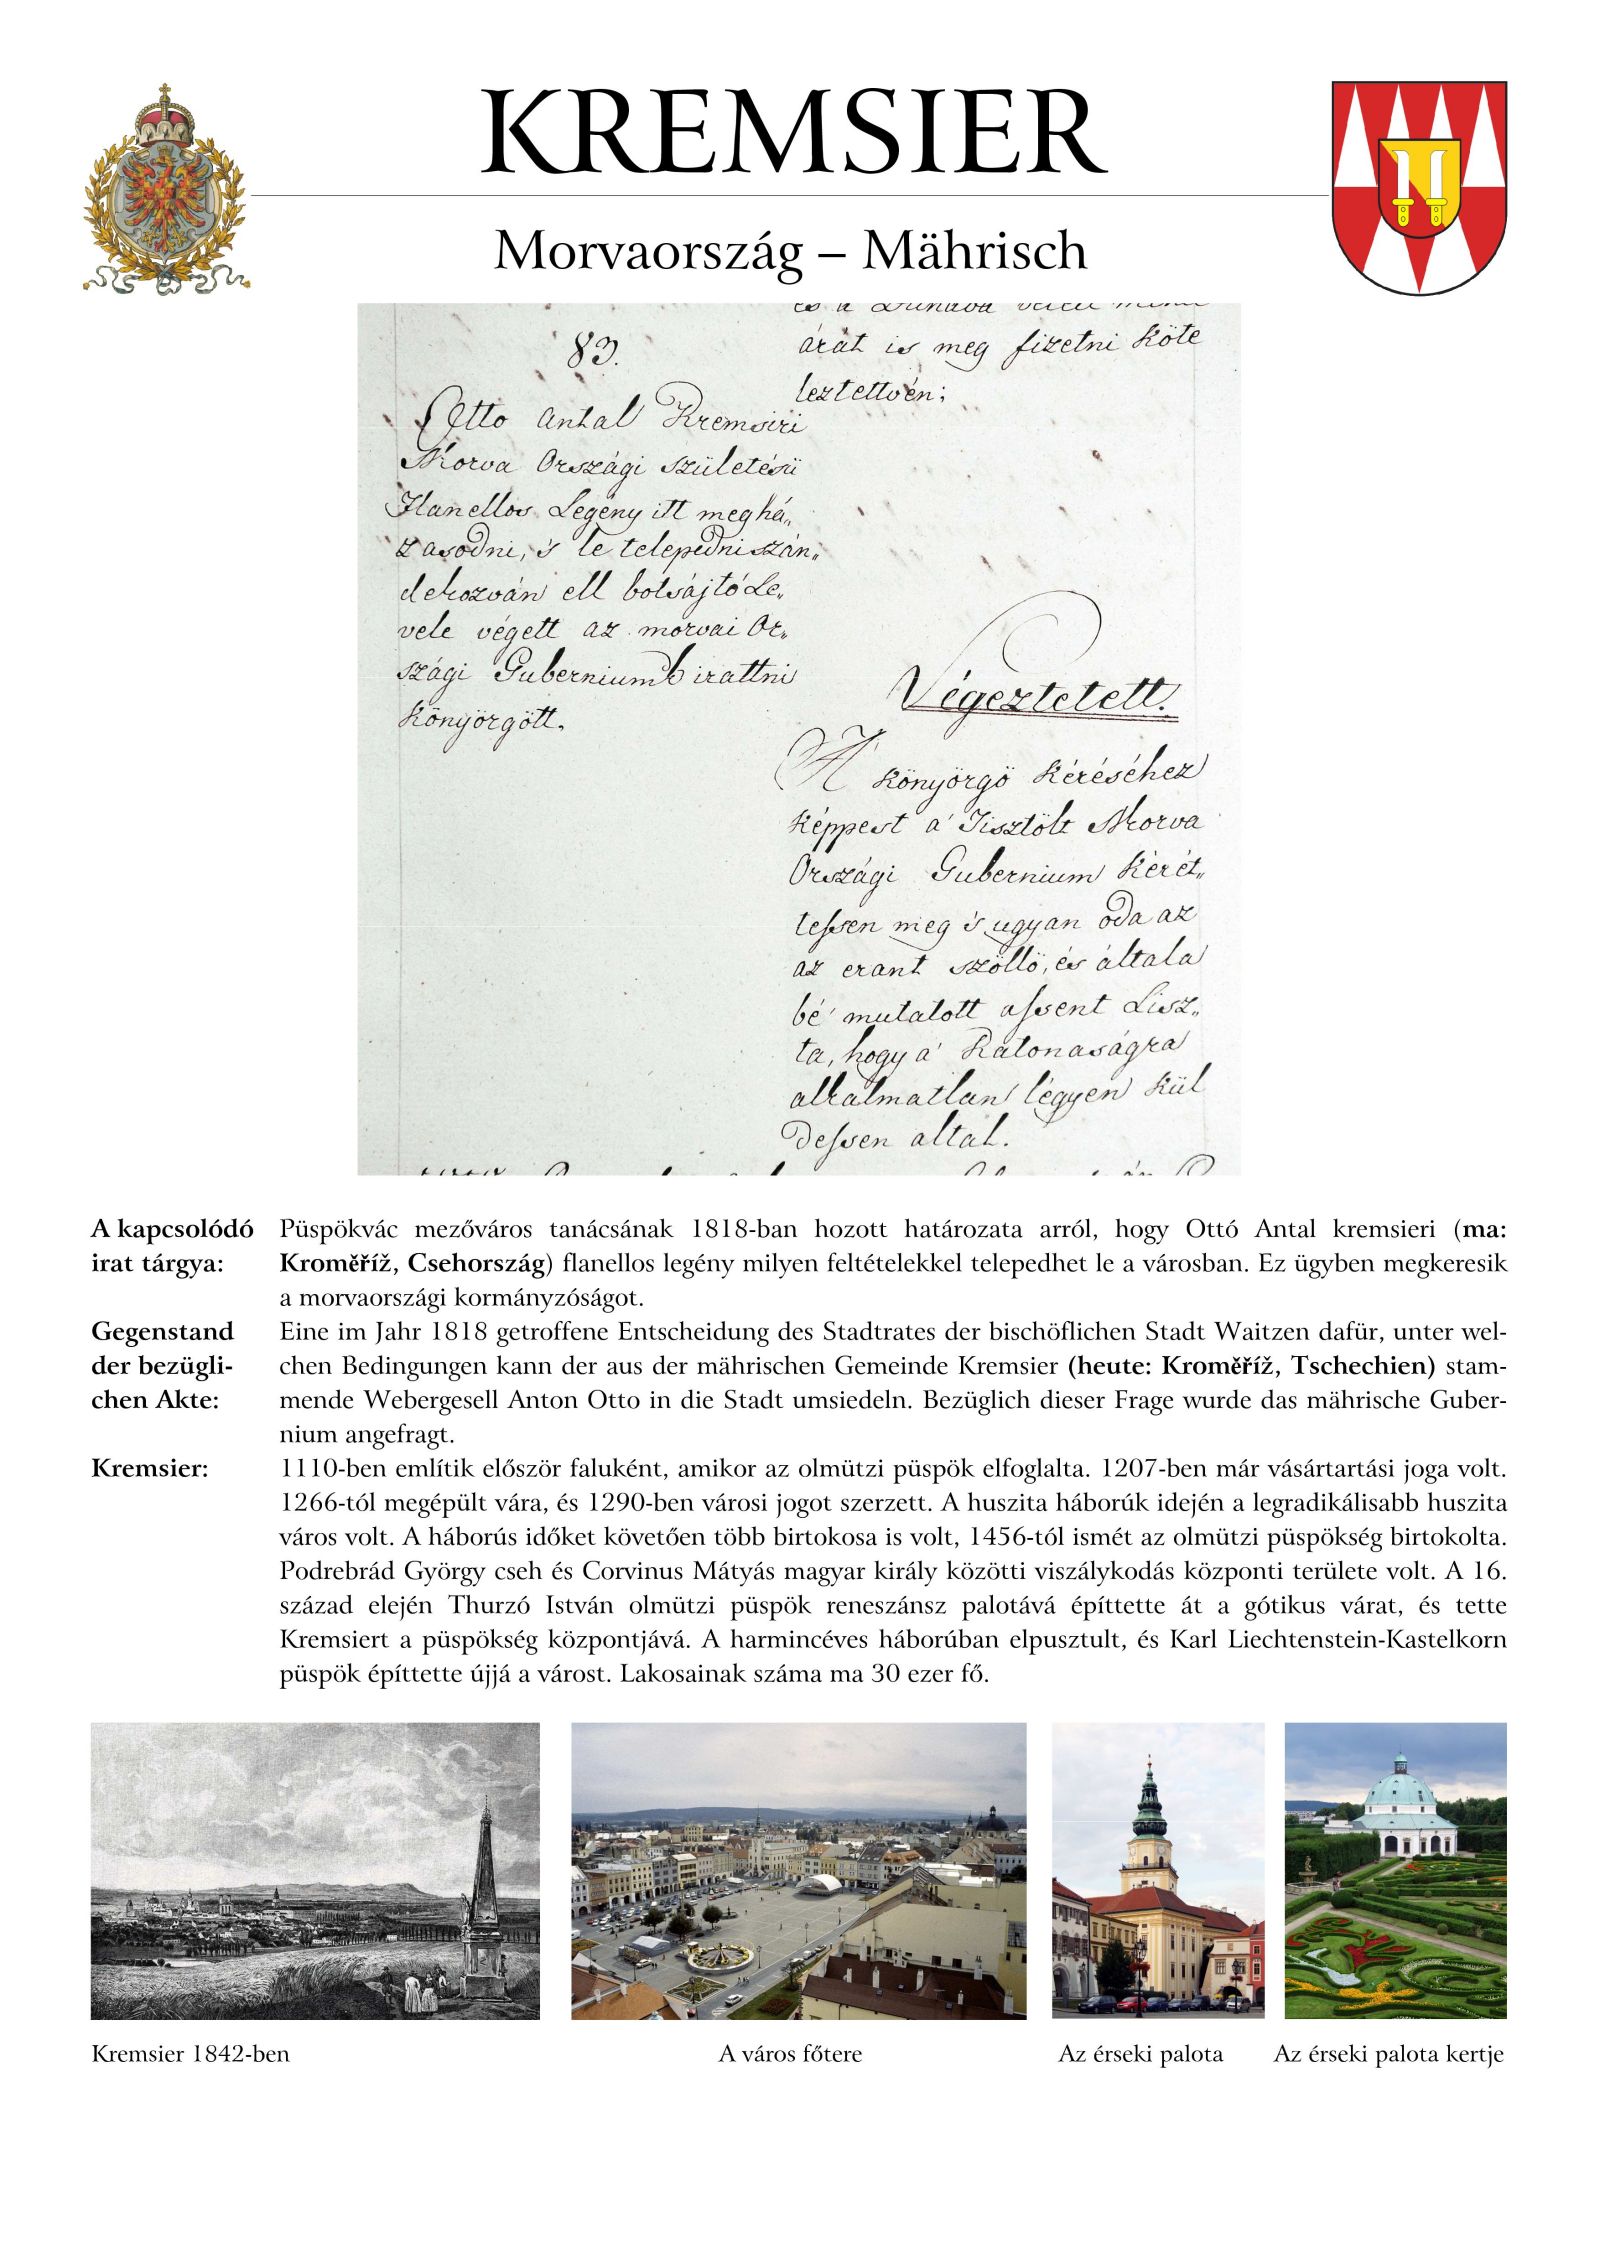 KREMSIER
Morvaország – Mährisch
83.
Otto Antal Kremsiri
Morva Országi születésü
Flanellos Legény itt meghá„
zasodni, 's le telepedni szán„
dekozván ell botsájtó Le„
vele végett az morvai Or„
szági Guberniumb irattni
könyörgött.
és a
árát is meg fizetni köte
leztettvén;
Végeztetett.
A' könyörgö kéréséhez
képpest a' Tisztölt Morva
Országi Gubernium kérét„
tessen meg 's ugyan oda az
az erant szólló, és általa
bé mutatott assent Lisz„
ta, hogy a' Katonaságra
alkalmatlan légyen kül
dessen altal.
A kapcsolódó
irat tárgya:
Püspökvác mezőváros tanácsának 1818-ban hozott határozata arról, hogy Ottó Antal kremsieri (ma:
Kroměříž, Csehország) flanellos legény milyen feltételekkel telepedhet le a városban. Ez ügyben megkeresik
a morvaországi kormányzóságot.
Gegenstand
der bezügli-
chen Akte:
Eine im Jahr 1818 getroffene Entscheidung des Stadtrates der bischöflichen Stadt Waitzen dafür, unter wel-
chen Bedingungen kann der aus der mährischen Gemeinde Kremsier (heute: Kroměříž, Tschechien) stam-
mende Webergesell Anton Otto in die Stadt umsiedeln. Bezüglich dieser Frage wurde das mährische Guber-
nium angefragt.
Kremsier:
1110-ben említik először faluként, amikor az olmützi püspök elfoglalta. 1207-ben már vásártartási joga volt.
1266-tól megépült vára, és 1290-ben városi jogot szerzett. A huszita háborúk idején a legradikálisabb huszita
város volt. A háborús időket követően több birtokosa is volt, 1456-tól ismét az olmützi püspökség birtokolta.
Podrebrád György cseh és Corvinus Mátyás magyar király közötti viszálykodás központi területe volt. A 16.
század elején Thurzó István olmützi püspök reneszánsz palotává építtette át a gótikus várat, és tette
Kremsiert a püspökség központjává. A harmincéves háborúban elpusztult, és Karl Liechtenstein-Kastelkorn
püspök építtette újjá a várost. Lakosainak száma ma 30 ezer fő.
Kremsier 1842-ben
A város főtere
Az érseki palota
Az érseki palota kertje